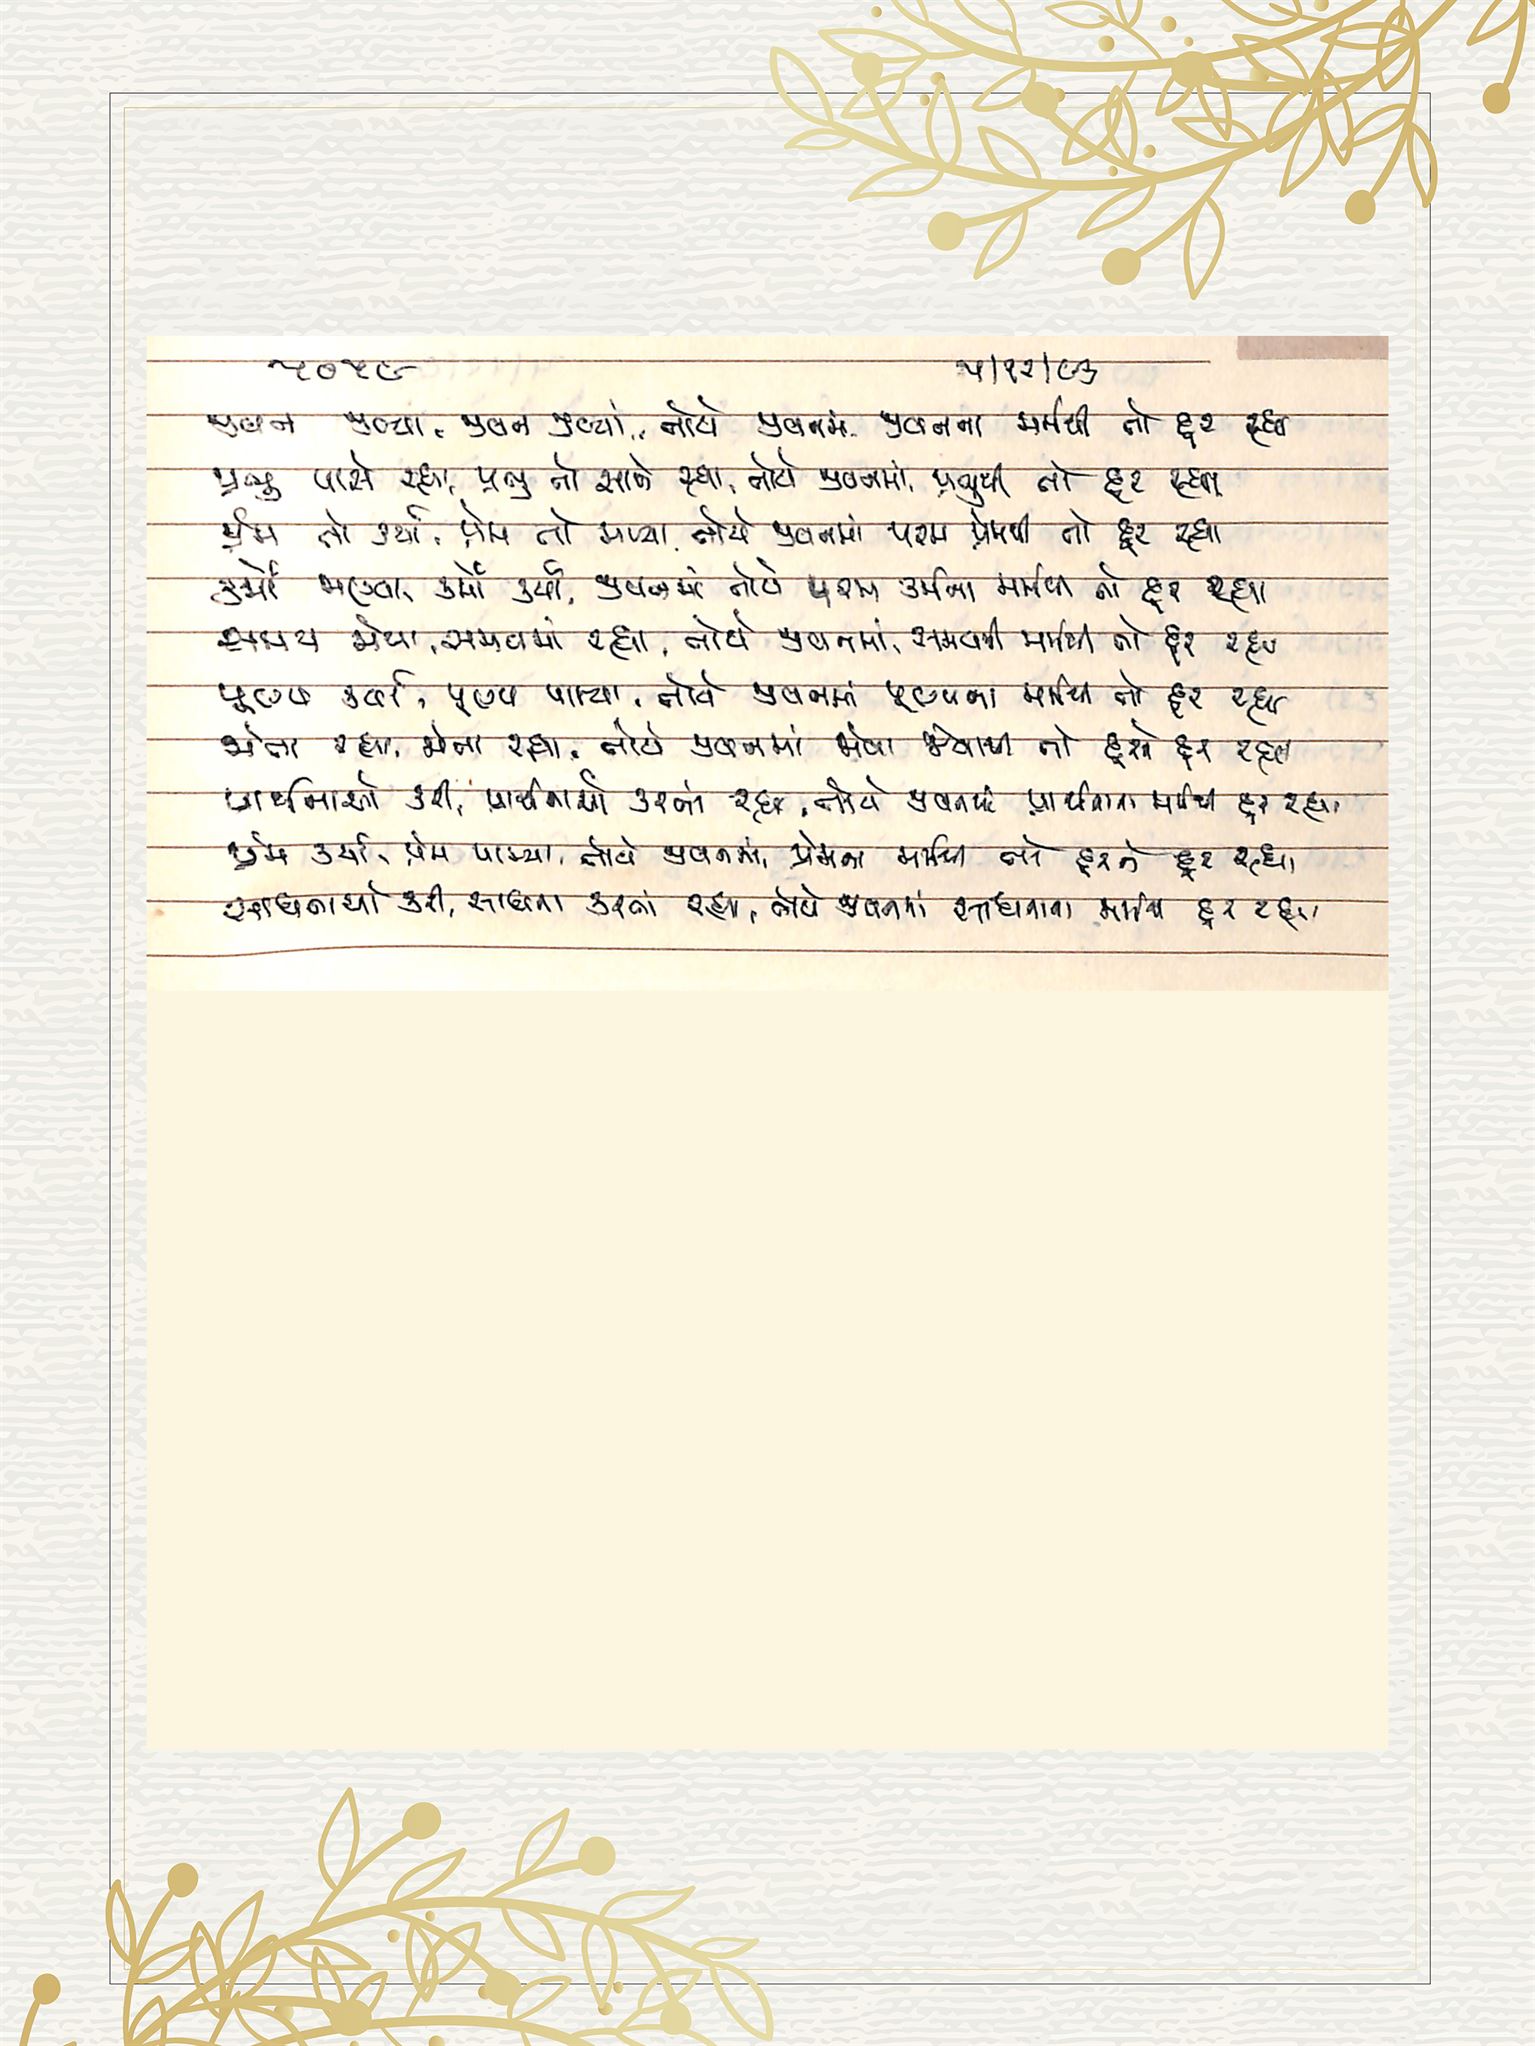 ૫૦૫૯ ૫/૧૨/૯૩
જીવન જીવ્યા, જીવન જીવ્યાં, તોયે જીવનમાં જીવનના મર્મથી તો દૂર રહ્યા
પ્રભુ પાસે રહ્યા, પ્રભુ તો સાથે રહ્યા, તોયે જીવનમાં, પ્રભુથી તો દૂર રહ્યા
પ્રેમ તો કર્યા, પ્રેમ તો મળ્યા, તોયે જીવનમાં પરમ પ્રેમથી તો દૂર રહ્યા
કર્મો કર્મો કર્યાં, જીવનમાં તોયે પરમ કર્મના મર્મથી તો દૂર રહ્યા
સમય સમયમાં રહ્યા, તોયે જીવનમાં, સમયથી મર્મથી તો દૂર રહ્યા
પૂજન કર્યાં, પૂજન પામ્યા, તોયે જીવનમાં પૂજનના મર્મથી તો દૂર રહ્યા
એના રહ્યા, એના રહ્યા, તોયે જીવનમાં એવા એવાથી તો દૂરને દૂર રહ્યા
પ્રાર્થનાઓ કરી, પ્રાર્થનાઓ કરતાં રહ્યા, તોયે જીવનમાં પ્રાર્થનાના મર્મથી દૂર રહ્યા
પ્રેમ કર્યા, પ્રેમ પામ્યા, તોયે જીવનમાં, પ્રેમના મર્મથી તો દૂરને દૂર રહ્યા
સાધનાઓ કરી, સાધના કરતાં રહ્યા, તોયે જીવનમાં સાધનાના મર્મથી દૂર રહ્યા